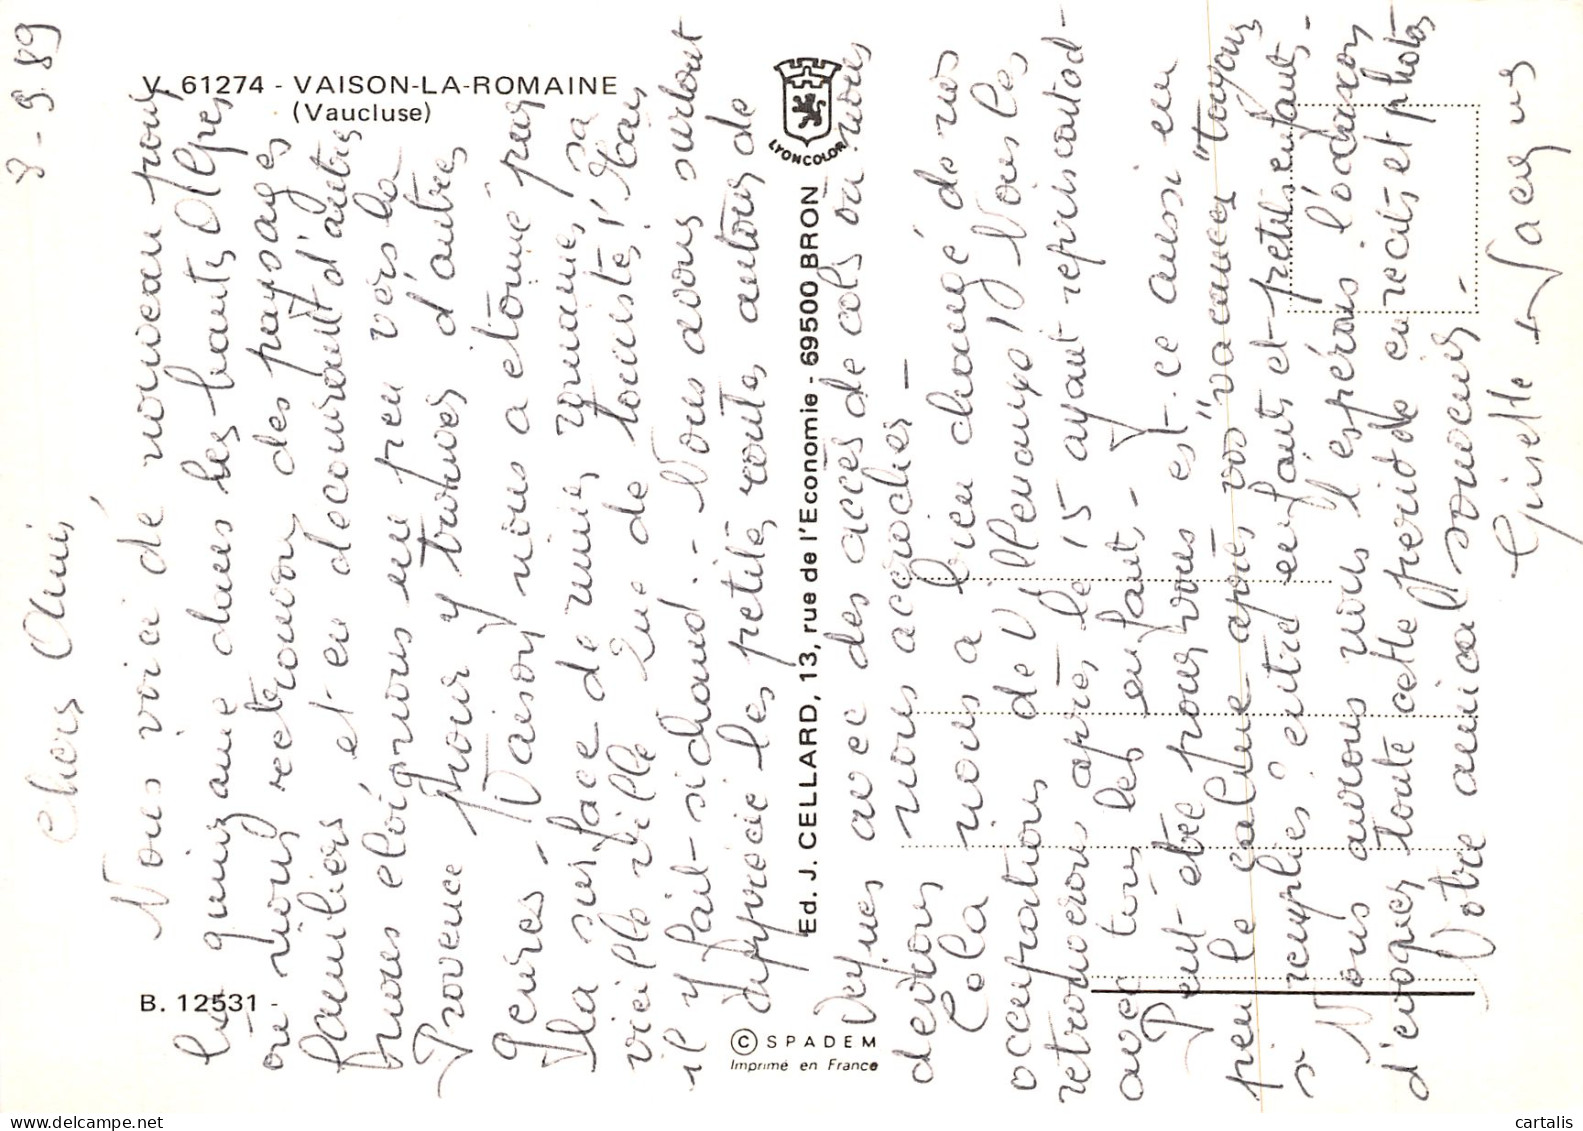 V. 61274 - VAISON-LA-ROMAINE
(Vaucluse)
B. 12531 -
LYONCOLOR
Ed. J. CELLARD, 13, rue de l'Economie - 69500 BRON
© SPADEM
Imprimé en France
8-9.89
Chers Amis,
Nous voici de nouveau pour
quinzaine dans les hautes Alpes
où nous retrouvons des paysages
familiers, et en découvrant d'autres
nous éloignons un peu vers la
Provence pour y trouver d'autres
genres - Vaison nous a étonné par
la surface de ruines romaines, sa
vieille ville que de touristes! Mais
il y fait si chaud - Nous avons surtout
apprécié les petites routes autour de
Veynes avec des accès de cols où nous
devrons nous accrocher -
Cela nous a bien changé de nos
occupations de Villemomble Nous les
retrouverons après le 15 ayant repris contact
avec tous les enfants -
Peut-être pour vous est-ce aussi un
peu le calme après vos "vacances" toujours
si remplies? entre enfants et petits enfants -
Nous aurons nous l'espérons l'occasion
d'évoquer toute cette période en récits et photos
Votre amical souvenir -
Giselle et Jacques